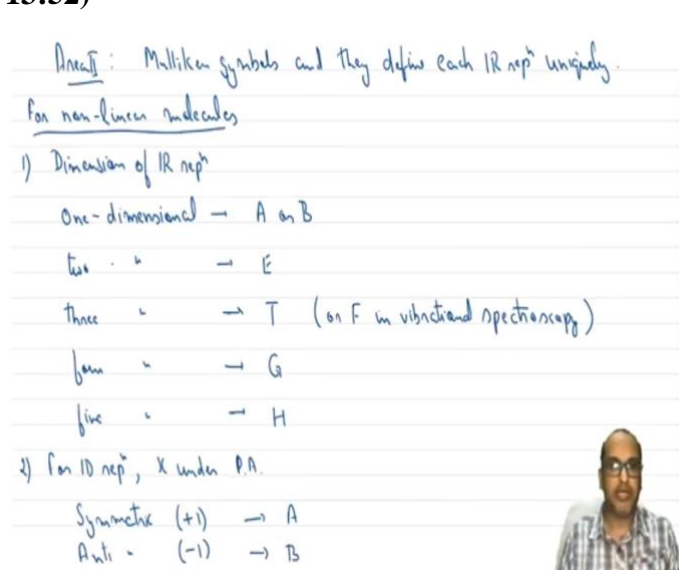 Area II : Mulliken symbols and they define each IR repⁿ uniquely.
For non-linear molecules
1) Dimension of IR repⁿ
One-dimensional → A or B
two " → E
three " → T (or F in vibrational spectroscopy)
four " → G
five " → H
2) For 1D repⁿ, X under P.A.
Symmetric (+1) → A
Anti " (-1) → B